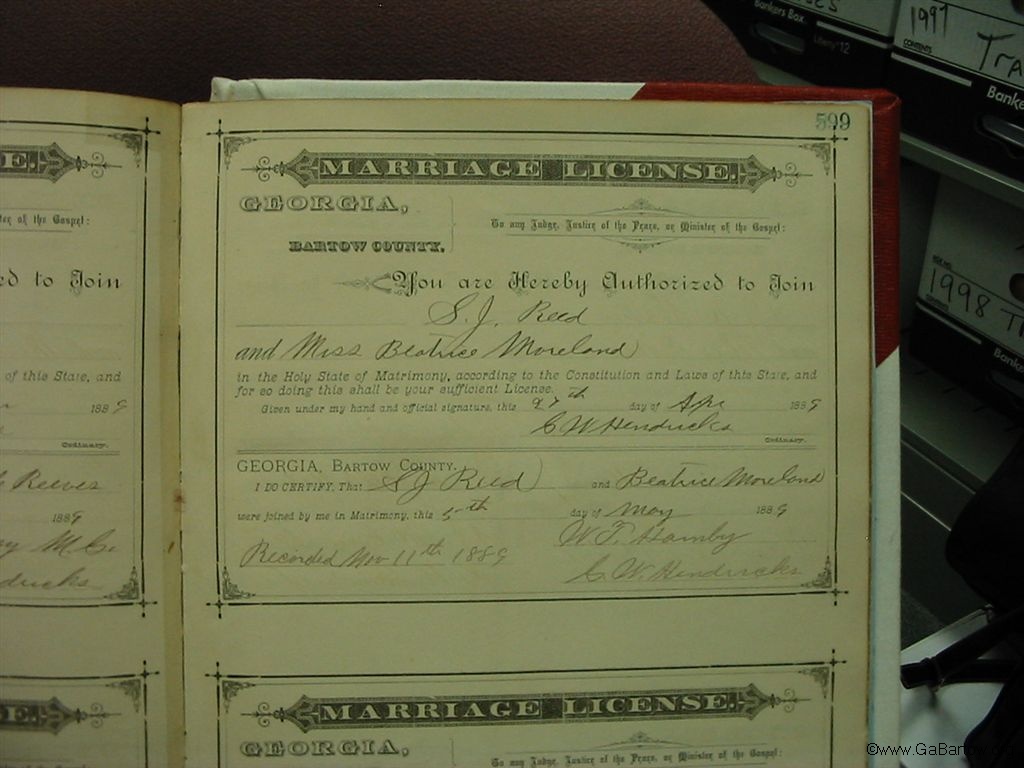 599
MARRIAGE LICENSE.
GEORGIA,
BARTOW COUNTY.
To any Judge, Justice of the Peace, or Minister of the Gospel:
You are Hereby Authorized to Join
S. J. Reed
and Miss Beatrice Moreland
in the Holy State of Matrimony, according to the Constitution and Laws of this State, and
for so doing this shall be your sufficient License.
Given under my hand and official signature, this 27th day of Apr 1889
C W Hendricks
Ordinary.
GEORGIA, BARTOW COUNTY.
I DO CERTIFY, That S J Reed and Beatrice Moreland
were joined by me in Matrimony, this 5th day of May 1889
W. T. Hamby
Recorded Nov 11th 1889
C. W. Hendricks
MARRIAGE LICENSE.
GEORGIA,
To any Judge, Justice of the Peace, or Minister of the Gospel:
E.
ter of the Gospel:
ed to Join
of this State, and
1889
Ordinary.
Reeves
1889
dricks
E.
Bankers Box
Liberty 12
1997
CONTENTS
Tra
Banke
1998 T
Banke
©www.GaBarto